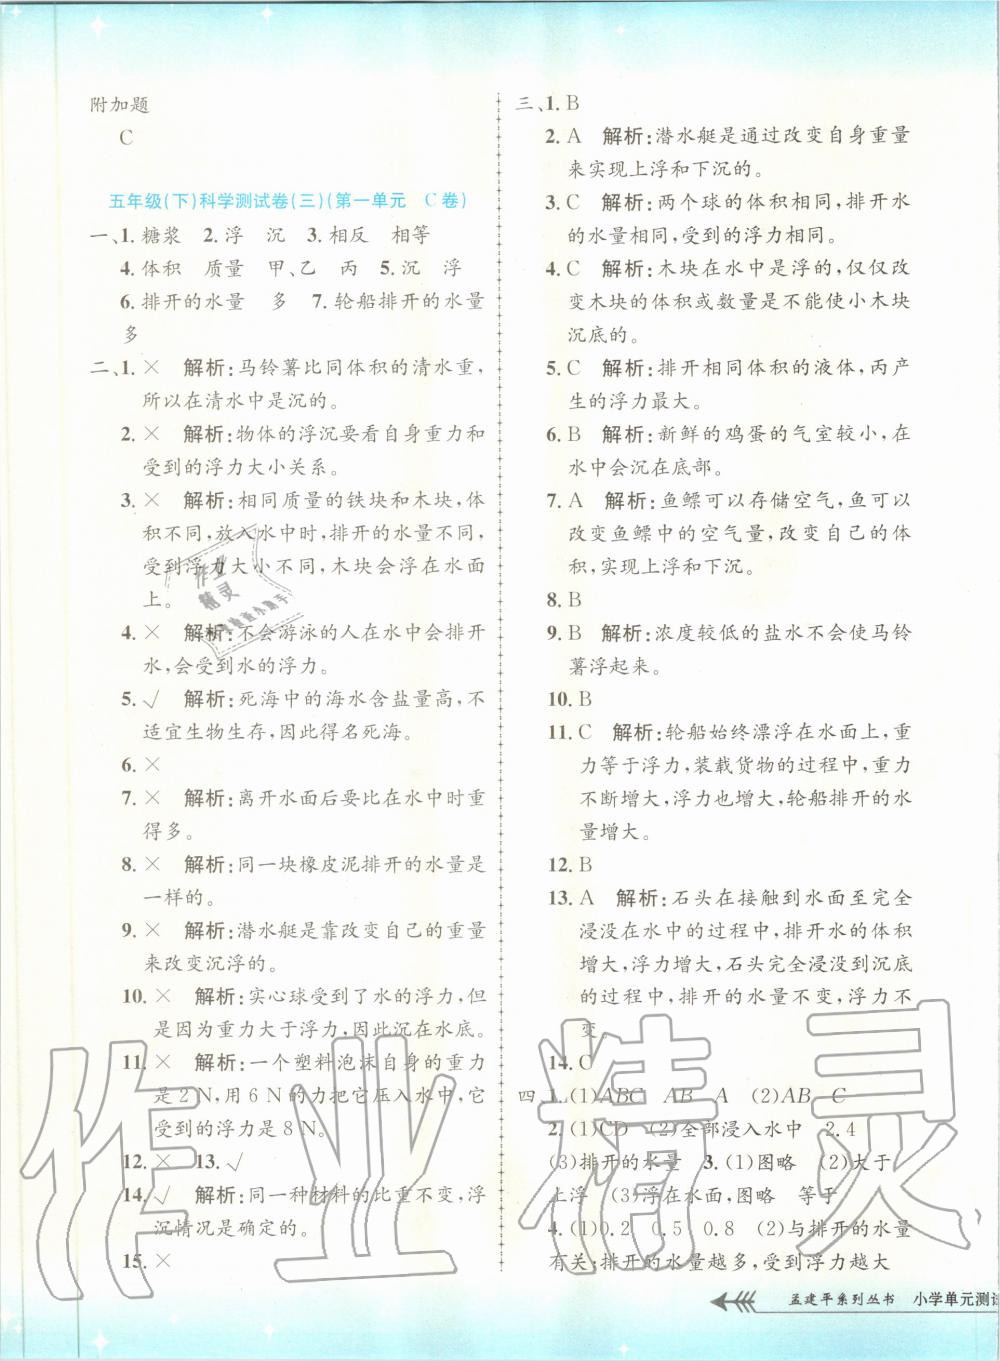 附加题
C
五年级(下)科学测试卷(三)(第一单元 C卷)
一、1. 糖浆 2. 浮 沉 3. 相反 相等
4. 体积 质量 甲、乙 丙 5. 沉 浮
6. 排开的水量 多 7. 轮船排开的水量
多
二、1. × 解析:马铃薯比同体积的清水重,
所以在清水中是沉的。
2. × 解析:物体的浮沉要看自身重力和
受到的浮力大小关系。
3. × 解析:相同质量的铁块和木块,体
积不同,放入水中时,排开的水量不同,
受浮力大小不同,木块会浮在水面
上。
4. × 解析:不会游泳的人在水中会排开
水,会受到水的浮力。
5. √ 解析:死海中的海水含盐量高,不
适宜生物生存,因此得名死海。
6. ×
7. × 解析:离开水面后要比在水中时重
得多。
8. × 解析:同一块橡皮泥排开的水量是
一样的。
9. × 解析:潜水艇是靠改变自己的重量
来改变沉浮的。
10. × 解析:实心球受到了水的浮力,但
是因为重力大于浮力,因此沉在水底。
11. × 解析:一个塑料泡沫自身的重力
是2 N,用6 N的力把它压入水中,它
受到的浮力是8 N。
12. × 13. √
14. √ 解析:同一种材料的比重不变,浮
沉情况是确定的。
15. ×
三、1. B
2. A 解析:潜水艇是通过改变自身重量
来实现上浮和下沉的。
3. C 解析:两个球的体积相同,排开水
的水量相同,受到的浮力相同。
4. C 解析:木块在水中是浮的,仅仅改
变木块的体积或数量是不能使小木块
沉底的。
5. C 解析:排开相同体积的液体,丙产
生的浮力最大。
6. B 解析:新鲜的鸡蛋的气室较小,在
水中会沉在底部。
7. A 解析:鱼鳔可以存储空气,鱼可以
改变鱼鳔中的空气量,改变自己的体
积,实现上浮和下沉。
8. B
9. B 解析:浓度较低的盐水不会使马铃
薯浮起来。
10. B
11. C 解析:轮船始终漂浮在水面上,重
力等于浮力,装载货物的过程中,重力
不断增大,浮力也增大,轮船排开的水
量增大。
12. B
13. A 解析:石头在接触到水面至完全
浸没在水中的过程中,排开水的体积
增大,浮力增大,石头完全浸没到沉底
的过程中,排开的水量不变,浮力不
变。
14. C
四、1. (1)ABC AB A (2)AB C
2. (1)CD (2)全部浸入水中 2.4
(3)排开的水量 3. (1)图略 (2)大于
上浮 (3)浮在水面,图略 等于
4. (1)0.2 0.5 0.8 (2)与排开的水量
有关;排开的水量越多,受浮力越大
孟建平系列丛书 小学单元测试
作业精灵
作业
精灵